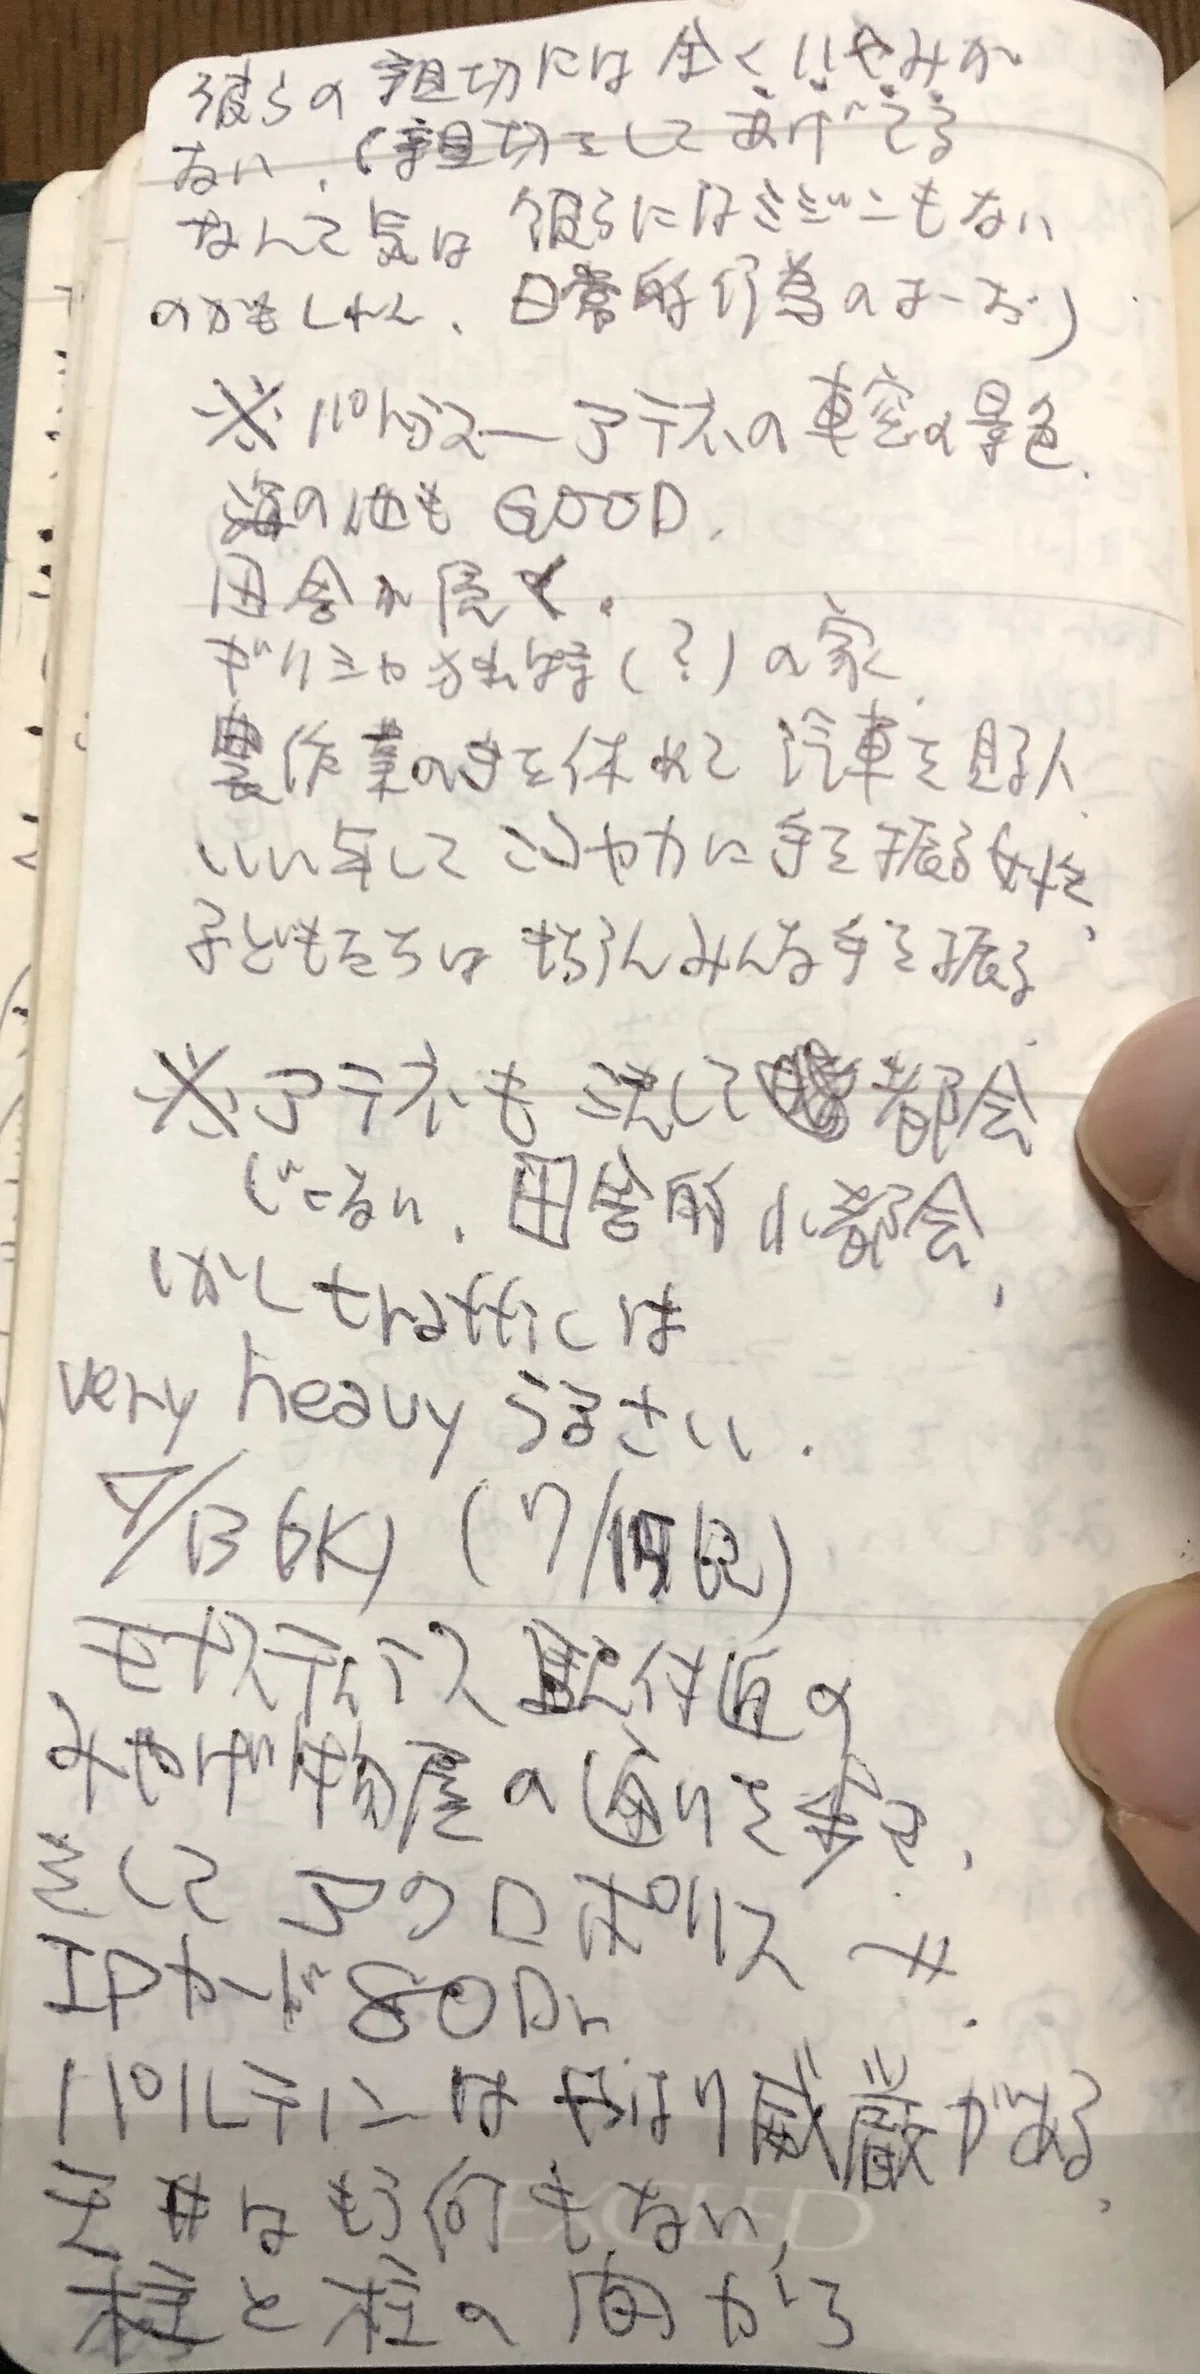 彼らの親切には全くいやみが
ない.(親切をしてあげてる
なんて気は彼らにはミジンもない
のかもしれん、日常的行為の
※パトラス―アテネの車窓の景色.
海の他もGOOD.
田舎の
ギリシャ独特(?)の家.
農作業の手を休めて汽車を見る人.
いい年してにこやかに手を振る女性、
子どもたちはもちろんみんな手を振る
※アテネも決して都会
じゃない、田舎的小都会、
しかしtrafficは
very heavyうるさい.
4/13
モナスティ 駅付近の
みやげ物屋の通りを歩き、
そしてアクロポリスへ.
IDカードで80Dr
パルテノンはやはり威厳がある、
天井はもう何もない、
柱と柱の間から
EXCEED